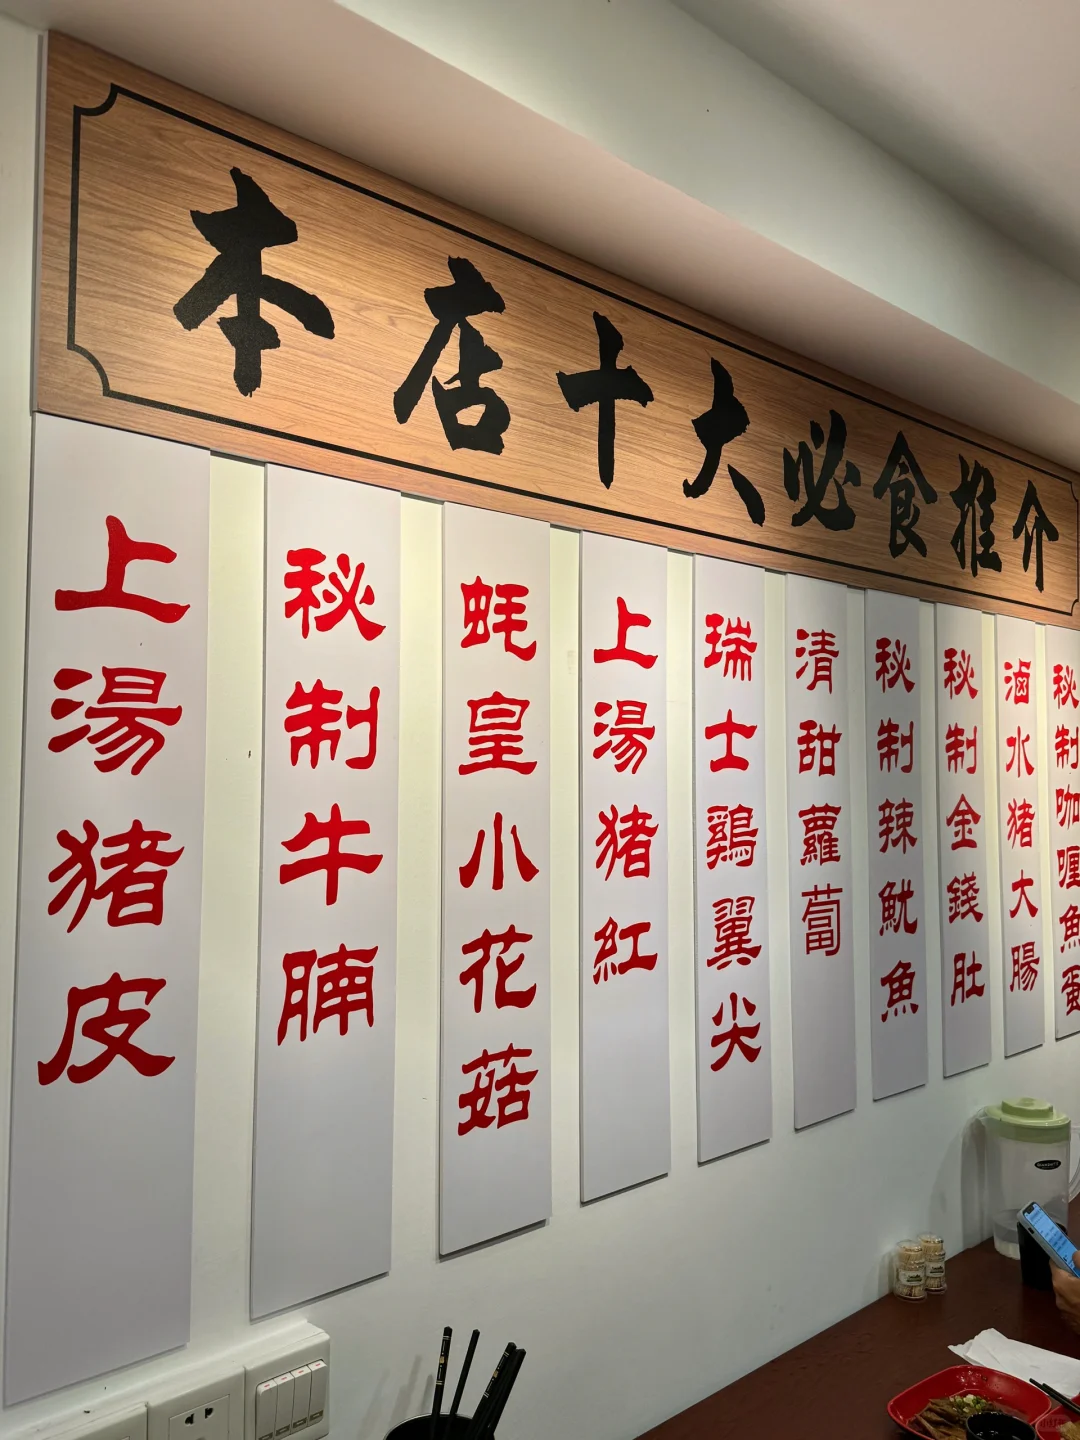 本店十大必食推介
上湯豬皮
秘制牛腩
蚝皇小花菇
上湯豬紅
瑞士鷄翼尖
清甜蘿蔔
秘制辣魷魚
秘制金錢肚
滷水豬大腸
秘制咖喱魚蛋